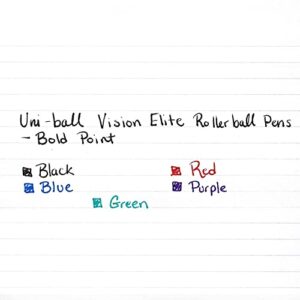 Uni-ball Vision Elite Rollerball Pens
- Bold Point
Black Red
Blue Purple
Green